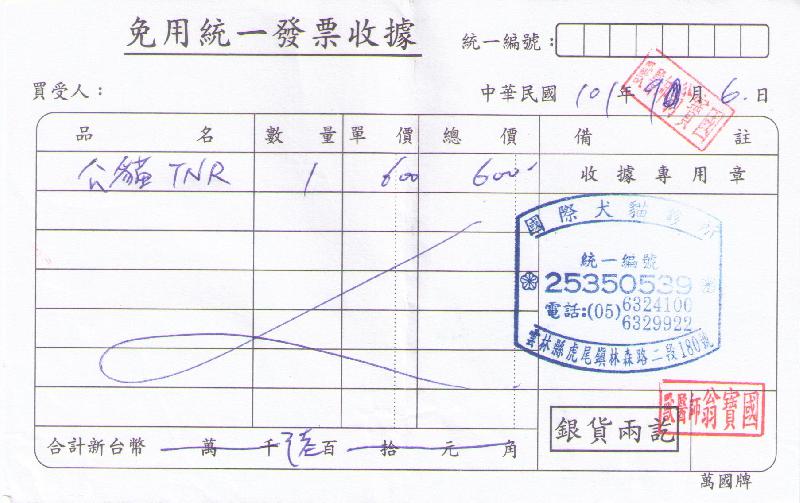 免用統一發票收據
統一編號：
買受人：
中華民國 101年 月 6.日
品名 數量 單價 總價 備註
公貓TNR 1 600 600 收據專用章
國際犬貓
統一編號
25350539
電話:(05)6324100
6329922
雲林縣虎尾鎮林森路二段180號
獸醫師翁寶國
銀貨兩訖
合計新台幣 萬 千 陸百 拾 元 角
萬國牌